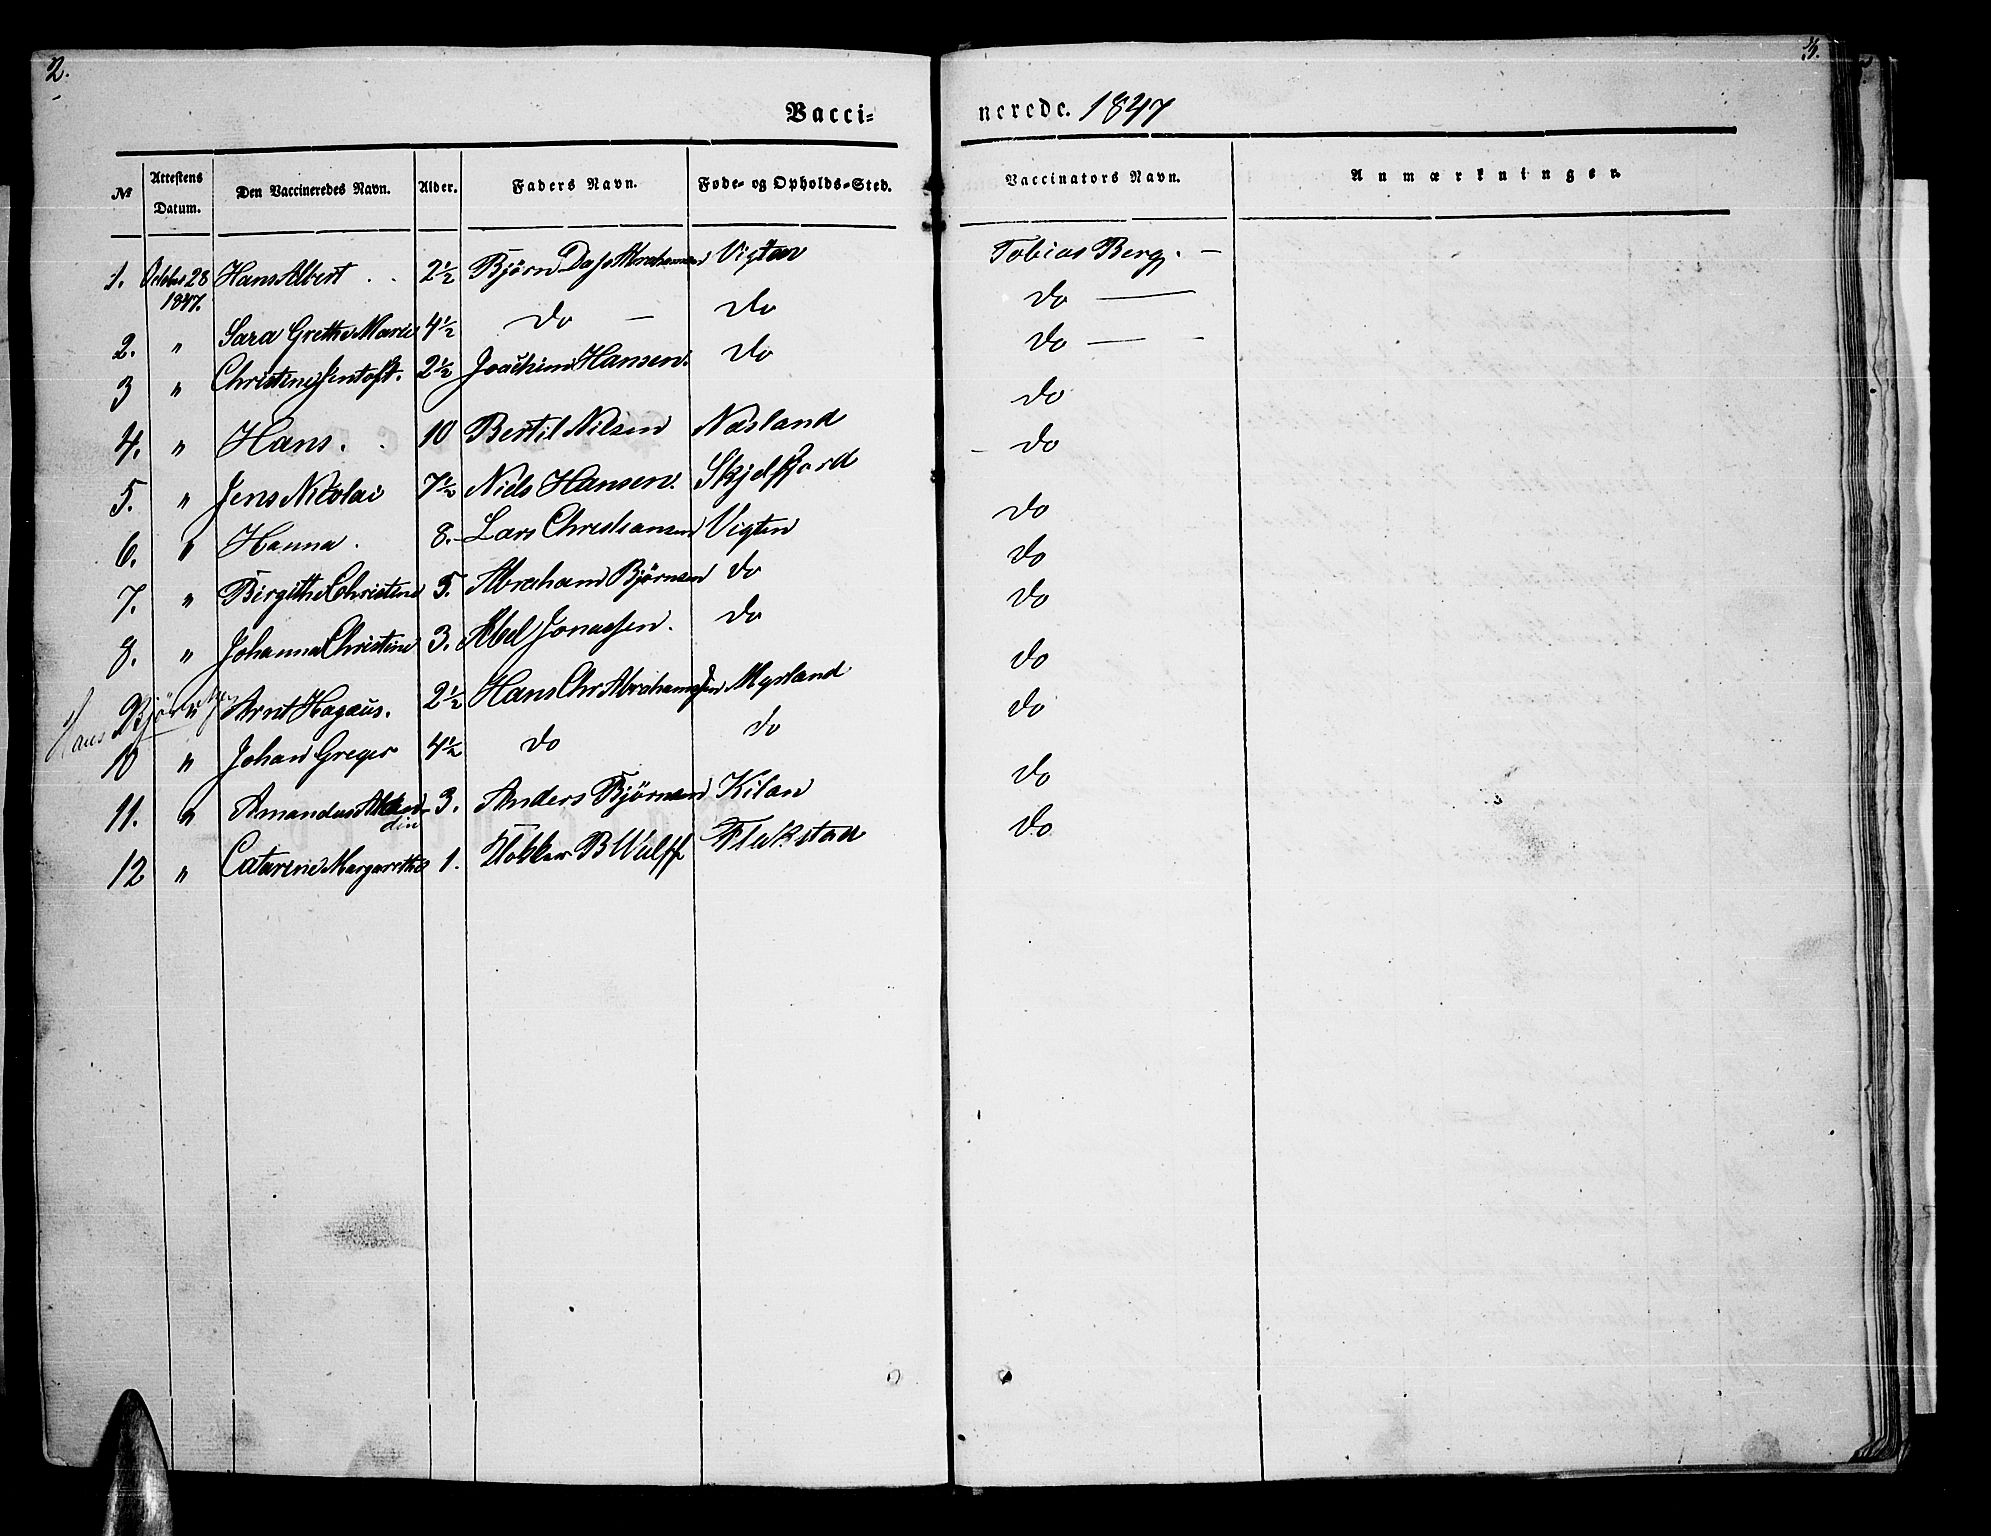 2.
3.
Vacci- nerede. 1847
No Attestens Datum. Den Vaccineredes Navn. Alder. Faders Navn. Føde- og Opholds-Sted. Vaccinators Navn. Anmærkninger.
1. October 28 1847. Hans Albert 2½ Bjørn Dass Abrahamsen Vigten Tobias Berg. —
2. " Sara Grethe Marie 4½ Do — Do Do —
3 " Christine Jentoft. 2½ Joachim Hansen. Do Do —
4. " Hans. 10 Bertil Nilsen Næsland Do
5. " Jens Nicolai 7½ Niels Hansen. Skjelfjord Do
6. " Hanna. 8. Lars Christiansen Vigten Do
7. " Birgithe Christine 5. Abraham Bjørnsen Do Do
8. " Johanna Christine 3. Abel Jonassen. Do Do
Hans Bjørnsen
9 " Arnt Hagæus. 2½ Hans Chr Abrahamsen Myrland Do
10 " Johan Greger 4½ Do Do Do
11. " Amandus din 3. Anders Bjørnsen Kilan Do
12 " Catarine Margarethe 1. B Wulff Flakstad Do